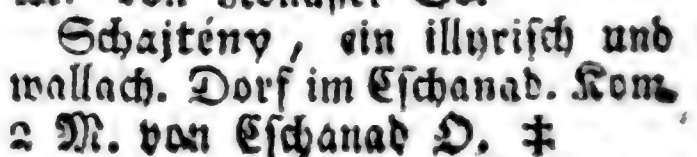 Schajtény, ein illyriſch und
wallach. Dorf im Cſchanad. Kom.
2 M. von Cſchanad O. ‡